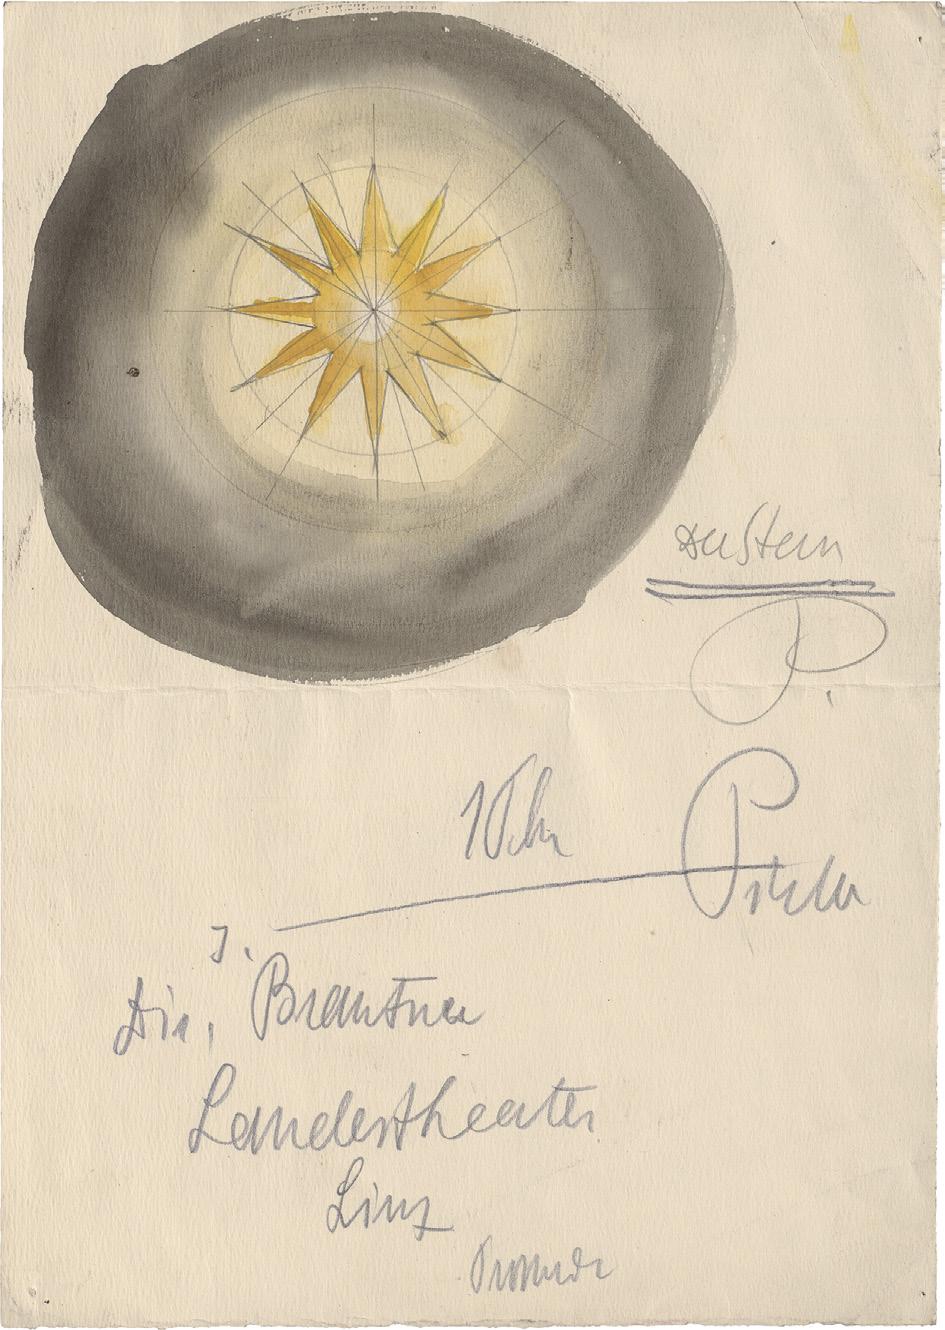 der Stern
P.
1 Uhr
J.
Dir. Brantner
Landestheater
Linz
Promenade